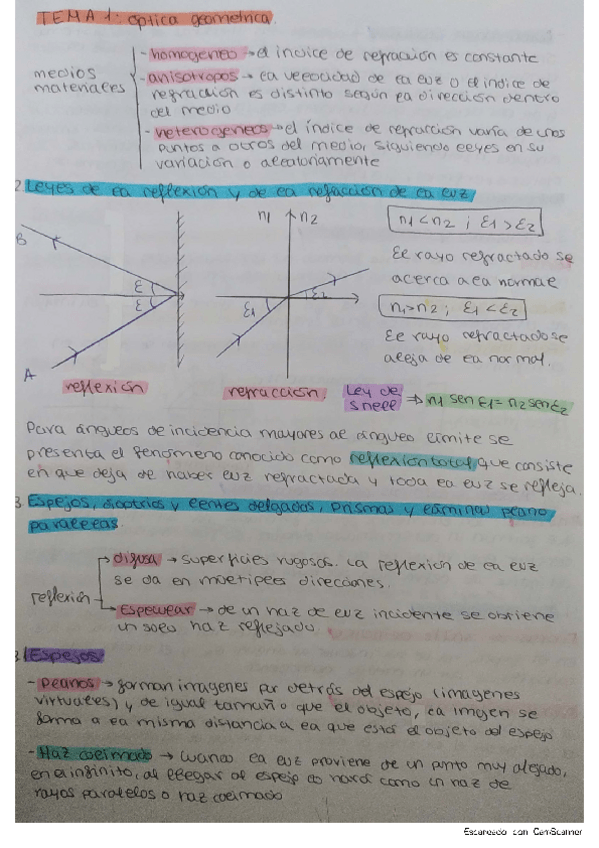 TEMA 1: óptica geométrica.
medios materiales
- homogeneo → el índice de refracción es constante
- anisotropos → la velocidad de la luz o el índice de
refracción es distinto según la dirección dentro
del medio
- heterogeneos → el índice de refracción varía de unos
puntos a otros del medio, siguiendo leyes en su
variación o aleatoriamente
2. Leyes de la reflexión y de la refracción de la luz
B
ε
ε
A
reflexión
n1 n2
ε1
ε2
refracción.
n1 < n2 ; ε1 > ε2
El rayo refractado se
acerca a la normal
n1 > n2 ; ε1 < ε2
El rayo refractado se
aleja de la normal.
Ley de
Snell ⇒ n1 sen ε1 = n2 sen ε2
Para ángulos de incidencia mayores al ángulo límite se
presenta el fenómeno conocido como reflexión total, que consiste
en que deja de haber luz refractada y toda la luz se refleja.
3. Espejos, dioptrios y lentes delgadas, prismas y láminas plano
paralelas.
reflexión
difusa → superficies rugosas. La reflexión de la luz
se da en múltiples direcciones.
Especular → de un haz de luz incidente se obtiene
un solo haz reflejado.
3.1 Espejos
- Planos → forman imágenes por detrás del espejo (imágenes
virtuales) y de igual tamaño que el objeto, la imagen se
forma a la misma distancia a la que está el objeto del espejo
- Haz colimado → cuando la luz proviene de un punto muy alejado,
en el infinito, al llegar al espejo lo hará como un haz de
rayos paralelos o haz colimado
Escaneado con CamScanner